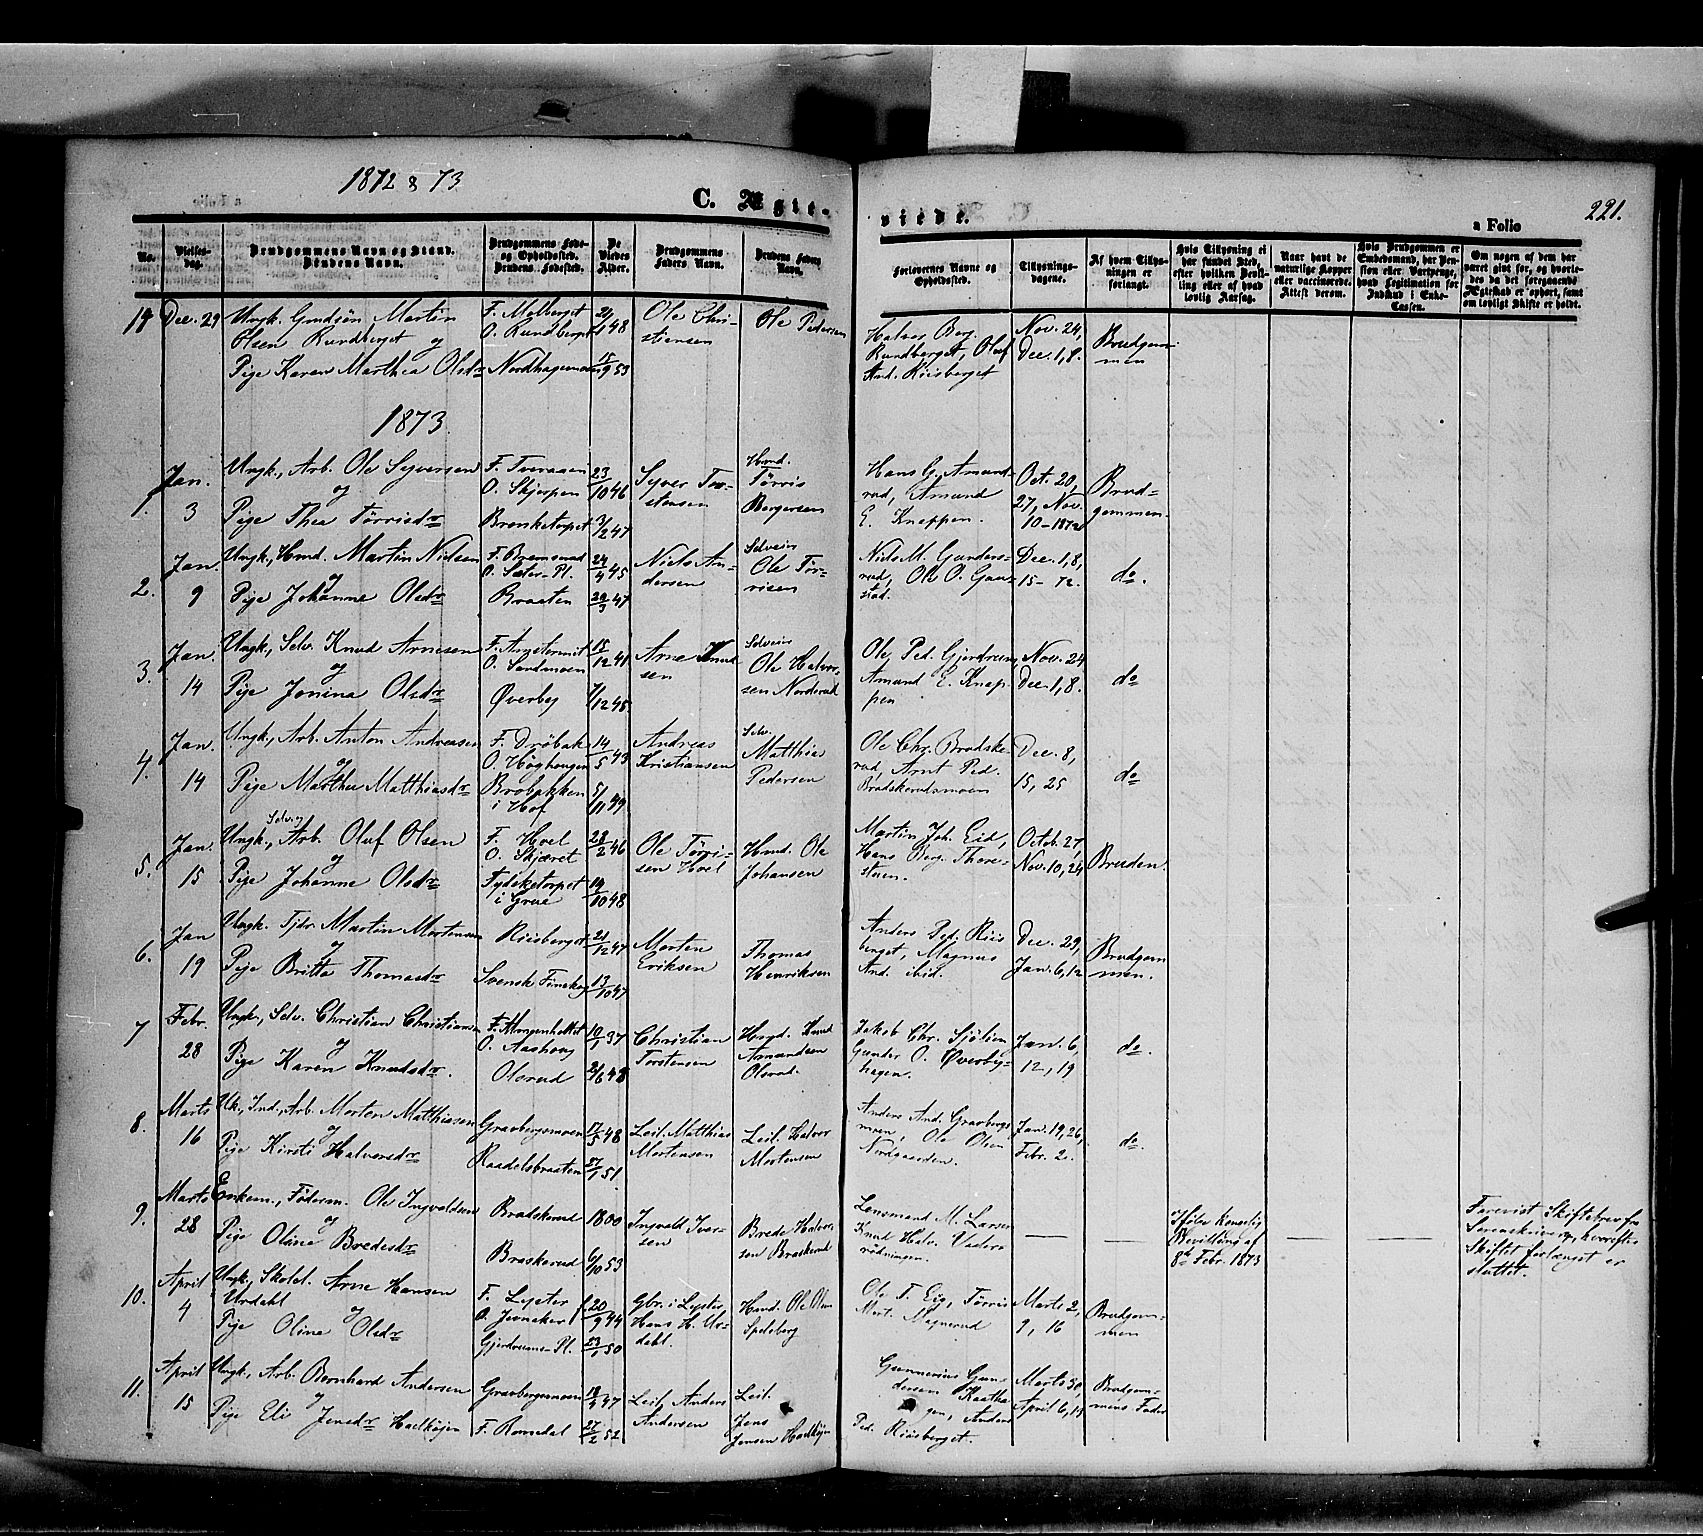 1872 & 73
C. Ægte-
viede.
a Folio
221.
No.
Vielses-
dag.
Brudgommens Navn og Stand.
Brudens Navn.
Brudgommens Føde-
og Opholdssted.
Brudens Fødested.
De
Viedes
Alder.
Brudgommens
Faders Navn.
Brudens Faders
Navn.
Forlovernes Navne og
Opholdssted.
Tillysnings-
dagene.
Af hvem Tillys-
ningen er
forlangt.
Hvis Tillysning ei
har fundet Sted,
efter hvilken Bevil-
ling eller af hvad
lovlig Aarsag.
Naar havt de
naturlige Kopper
eller vaccinerede.
Attest derom.
Hvis Brudgommen er
Embedsmand, har Pen-
sion eller Vartpenge,
hvad Legitimation for
Indskud i Enke-
Cassen.
Om nogen af dem har
været gift før, og hvorle-
des da det foregaaende
Ægteskab er ophørt, samt
om lovligt Skifte er holdt.
Dec. 29
Olsen Rundberget og
Pige Karen Marthea Olsdr
O. Rundberget
48
53
Ole Chri-
stiansen
Ole Pedersen
Halvor Berg.
Rundberget, Oluf
And. Riisberget
Nov. 24,
Dec. 1, 8.
Brudgom-
men
1873.
1.
Jan.
3
Ungk., Arb. Ole Syversen
og
Pige Thea Tørrisdr
F. Tveraaen
O. Skjerpen
23/10 46
3/2 47
Syver Tor-
stensen
Hmd.
Tørris
Bergersen
Hans G. Amund-
rud, Amund
E. Knappen.
Oct. 20,
27, Nov.
10 - 1872
Brud-
gommen.
2.
Jan.
9
Ungk., Hmd. Martin Nielsen
og
Pige Johanne Olsdr
O. Sæter-Pl.
Braaten
24/4 45
29/3 47
Niels An-
dersen
Selveier
Ole Tør-
risen
Niels M. Gunders-
rud, Ole O. Gaar-
stad.
Dec. 1, 8,
15 - 72.
do.
3.
Jan.
14
Ungk., Selv. Knud Arnesen
og
Pige Jonina Olsdr
O. Sandmoen
Øverby
15/12 41
Arne Knud-
sen
Selveier
Ole Halvor-
sen Norderud
Ole Ped. Gjerdrum,
Amund E. Knap-
pen
Nov. 24
Dec. 1, 8.
do
4.
Jan.
14
Ungk., Arb. Anton Andreasen
og
Pige Marthea Matthiasdr
F. Drøbak
O. Haghaugen
Brobakken
i Hof
14/5 43
5/11 49
Andreas
Kristiansen
Selv.
Matthias
Pedersen
Ole Chr. Bradske-
rud, Arnt Ped.
Bradskerudsmoen
Dec. 8,
15, 25
do
5.
Jan.
15
Ungk., Arb. Oluf Olsen
og
Pige Johanne Olsdr
F. Hvel
O. Skjæret
i Grue
28/2 46
19/10 48
Ole Tørri-
sen Hvel
Hmd. Ole
Johansen
Martin Joh. Eid,
Hans Berg. Thore-
stuen.
Octob. 27,
Nov. 10, 24
Bruden.
6.
Jan
19
Ungk. Tjdr. Martin Mortensen
og
Pige Britta Thomasdr
Riisberget
Svensk Finskog
21/12 47
13/10 47
Morten
Eriksen
Thomas
Henriksen
Anders Ped. Riis-
berget, Magnus
And. ibid.
Dec. 29,
Jan. 6, 12
Brudgom-
men.
7
Febr.
28
Ungk., Selv. Christian Christiansen
og
Pige Karen Knudsdr.
O. Aashoug
Olsrud
10/1 37
2/6 48
Christian
Torstensen
Hmd. Knud
Amundsen
Olsrud.
Jakob Chr. Sjølien
Gunder O. Øverby-
hagen.
Jan. 6,
12, 19
do.
8.
Marts
16
Uk., Ind., Arb. Morten Matthiasen
og
Pige Kirsti Halvorsdr
Gravbergsmoen
Raadelsbraaten
17/5 48
27/1 51
Leil. Matthias
Mortensen
Leil. Halvor
Mortensen
Anders And. Gravbergs-
moen, Ole Olsen
Nordgaarden.
Jan. 19, 26,
Febr. 2.
do.
9.
Marts
28
Enkem., Føderm. Ole Ingvaldsen
og
Pige Oline Bredesdr
Bradskerud
Braskerud
1800
6/10 53
Ingvald Iver-
sen
Brede Halvor-
sen Braskerud
Lensmand M. Larsen
Knud Halv. Vaaler-
rødningen.
Ifølge kongelig
Bevilling af
8de Febr. 1873
Forevist Skiftebrev fra
Sorenskriveren, hvorefter
Skiftet forlænget er
sluttet.
10.
April
4
Ungk., Skolel. Arne Hansen
Urdahl
og
Pige Oline Olsdr
F. Lyster
Gjerdrums-Pl.
20/9 44
23/1 50
Gbr. i Lyster
Hans H. Ur-
dahl.
Hmd. Ole Olsen
Spelsberg
Ole T. Eig, Tørris
Mort. Magnerud
Marts 2,
9, 16
Brudgom-
men
11.
April
15
Ungk., Arb. Bernhard Andersen
og
Pige Eli Jensdr Haelkøjen
Gravbergsmoen
F. Romsdal
47
27/2 52
Leil. Anders
Andersen
Leil.
Jens
Jensen Haelkøjen
Gunnerius Gun-
dersen Kaatha-
gen, Anders
Ped. Riisberget.
Marts 30,
April 6, 13
Brudgom-
mens Fader